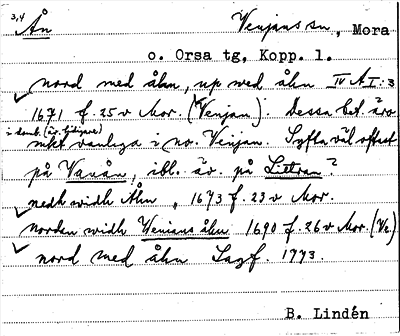 3,4
Ån Venjans sn, Mora
o. Orsa tg, Kopp. l.
nord med åhn, up med åhn IV A I:3
1671 f. 25 v Mor. (Venjan). Dessa bet. äro
i domb. (äv. tidigare)
mkt vanliga i no. Venjan. Syfta väl oftast
på Vanån, ibl. äv. på Littran?
nedh widh Åhn, 1673 f. 23 v Mor.
norden widh Weniens åhn 1690 f. 26 v Mor. (Ve.)
nord med åhn Lagf. 1773.
B. Lindén